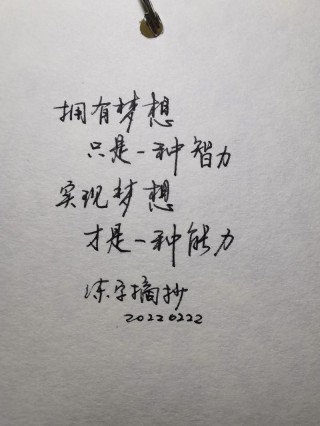 拥有梦想
只是一种智力
实现梦想
才是一种能力
练字摘抄
20220222